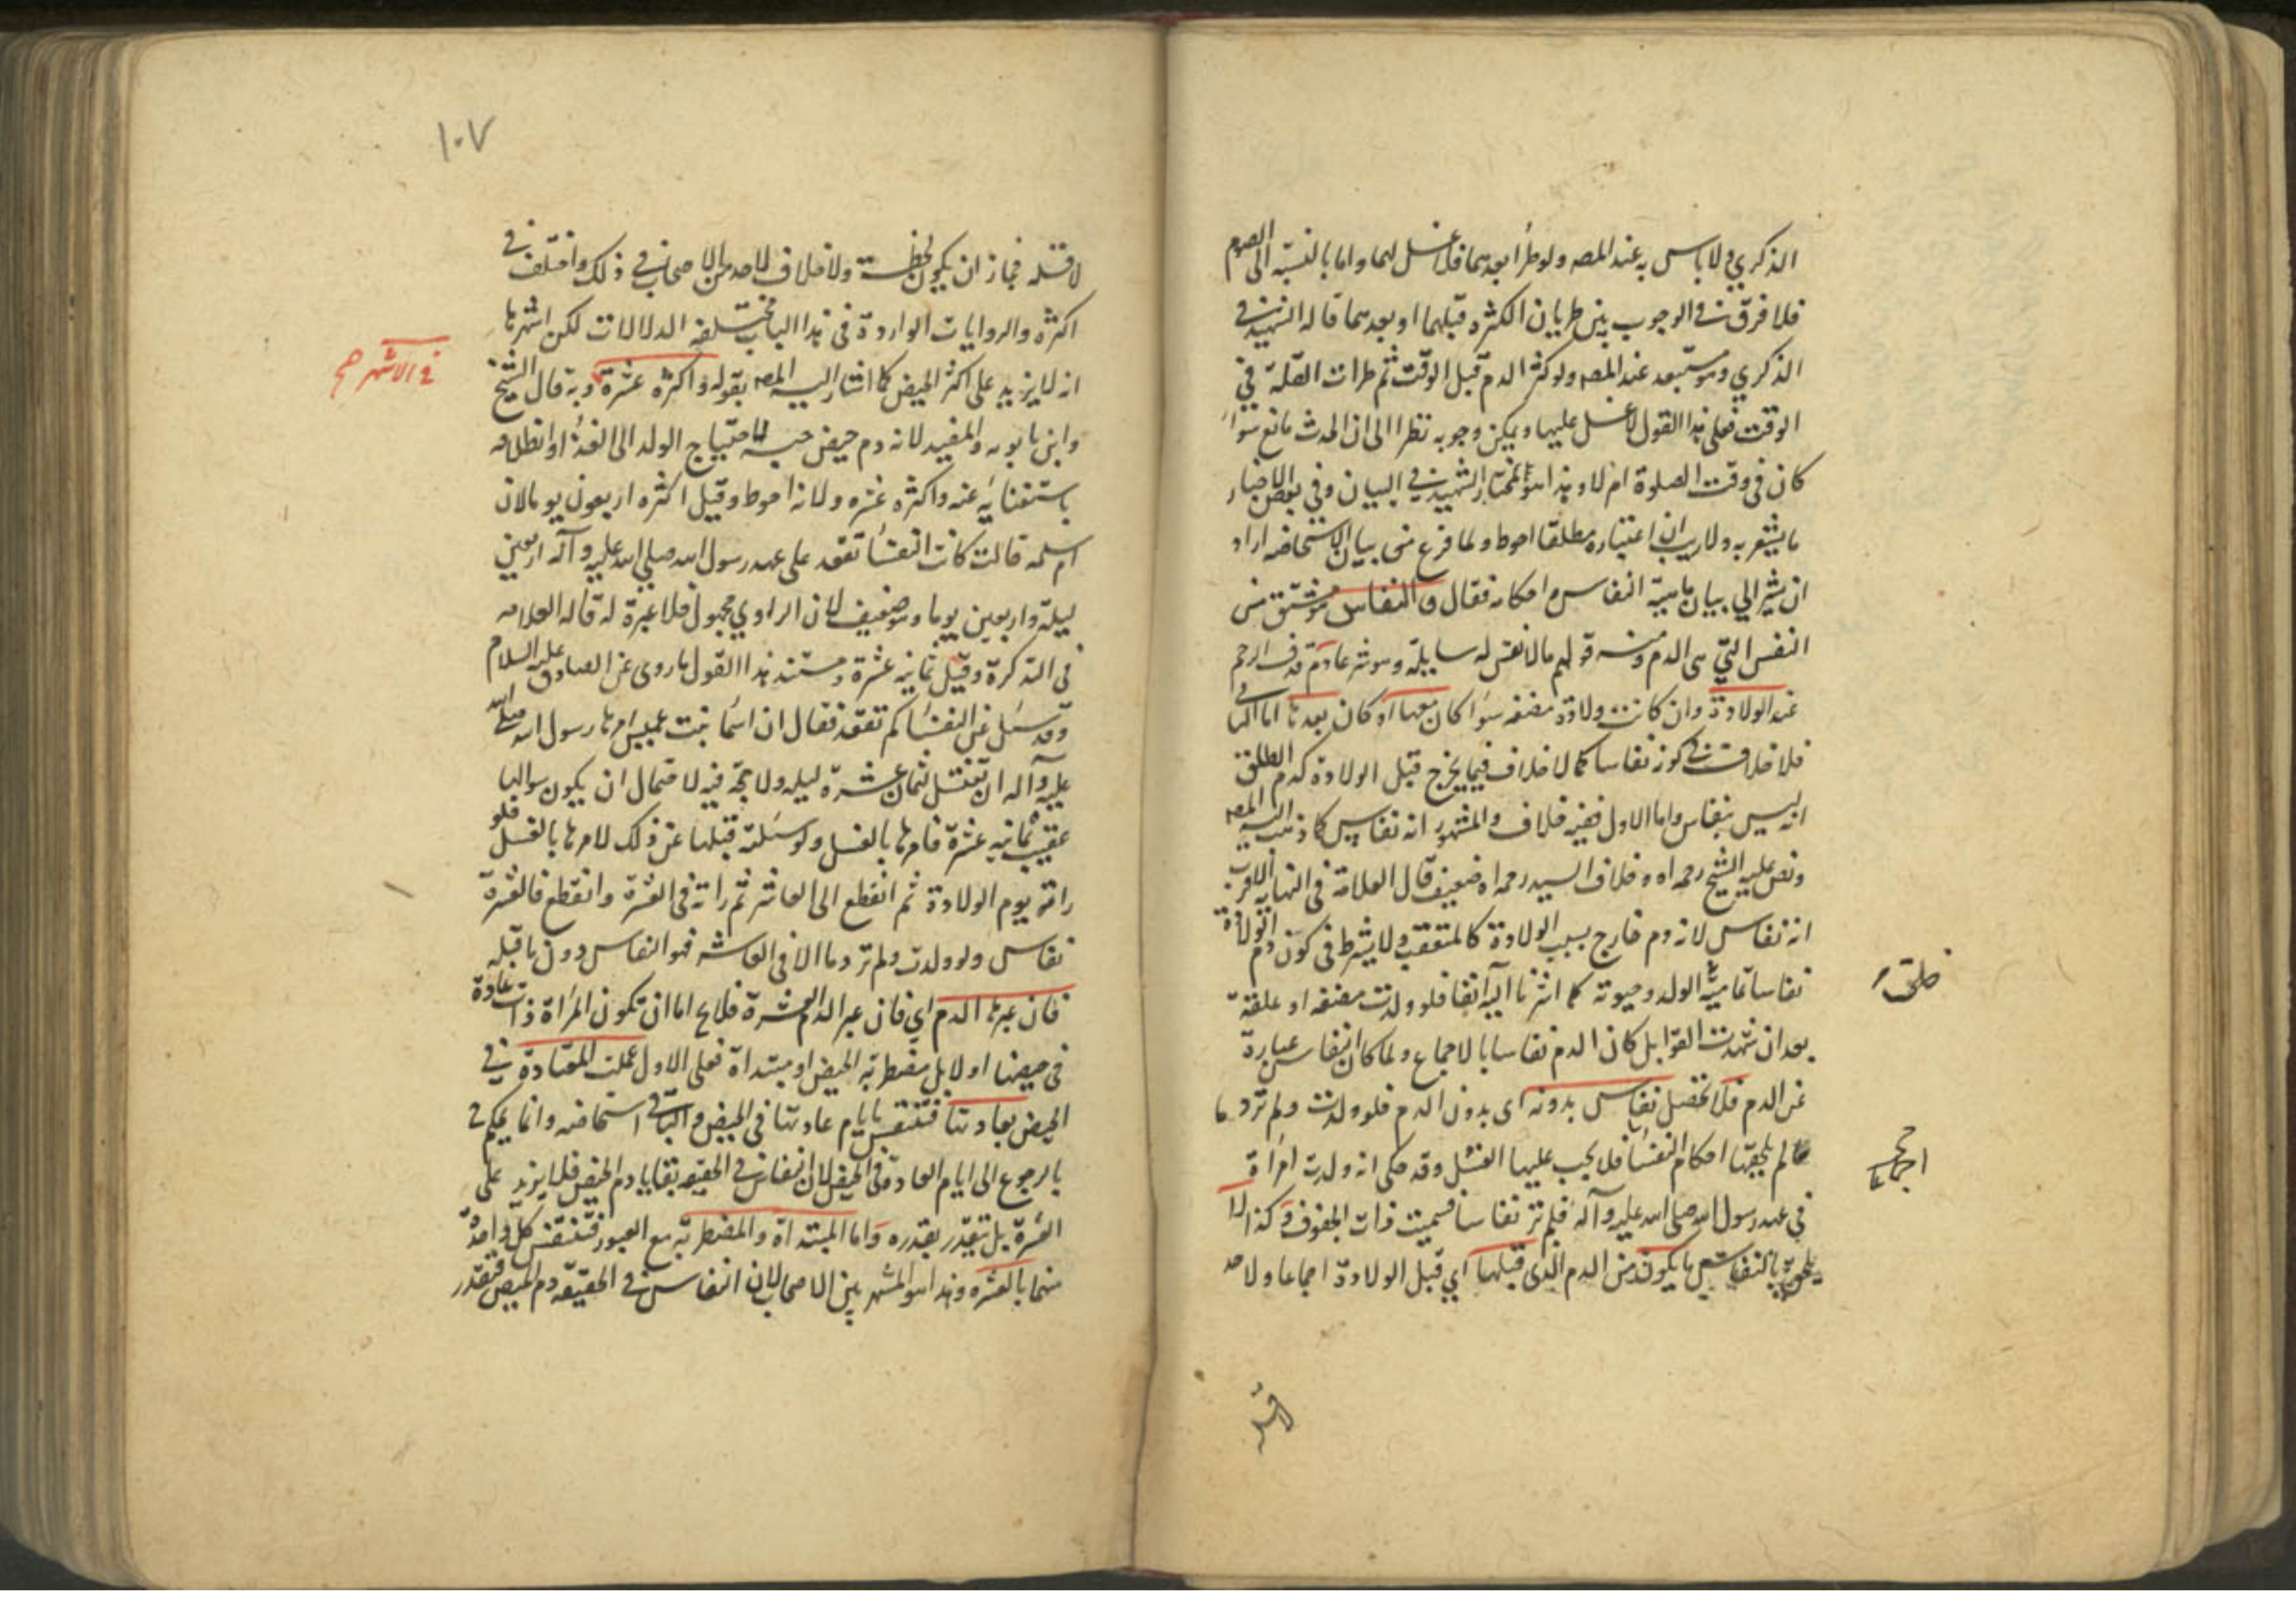 الذكري ولا باس به عند المصه ولو طرأ بعدهما فلا غسل لهما واما بالنسبة الى الصوم
فلا فرق في الوجوب بين طريان الكثره قبلهما او بعدهما قاله الشهيد في
الذكري وهو مستبعد عند المصه ولو كثر الدم قبل الوقت ثم طرات القلة في
الوقت فعلى هذا القول لا غسل عليها ويمكن وجوبه نظرا الى ان الحدث مانع سواء
كان في وقت الصلوة ام لا وهذا هو مختار الشهيد في البيان وفي بعض الاخبار
ما يشعر به ولا ريب ان اعتباره مطلقا احوط ولما فرغ من بيان الاستحاضه اراد
ان يشير الي بيان ماهية النفاس واحكامه فقال والنفاس مشتق من
النفس التي هى الدم ومنه قولهم مالا نفس له سايلة وهو شرعا دم قذفه الرحم
عند الولادة وان كانت ولادة مضغه سواء كان معها او كان بعدها اما الثاني
فلا خلاف في كونه نفاسا كما لا خلاف فيما يخرج قبل الولادة كدم الطلق
انه ليس بنفاس واما الاول ففيه خلاف والمشهور انه نفاس كما ذهب اليه المصه
ونص عليه الشيخ رحمه اه وخلاف السيد رحمه اه ضعيف قال العلامة في النهاية الاقرب
انه نفاس لانه دم خارج بسبب الولادة كالمتعقب ولا يشترط في كون دم الولادة
نفاسا تمامية الولد وحيوته كما اشرنا اليه انفا فلو ولدت مضغه او علقة
بعد ان شهدت القوابل كان الدم نفاسا بالاجماع ولما كان النفاس عبارة
عن الدم فلا تحصل نفاس بدونه اى بدون الدم فلو ولدت ولم تر دما
لم يلحقها احكام النفساء فلا يجب عليها الغسل وقد حكى انه ولدت امراة
في عهد رسول الله صلى الله عليه وآله فلم تر نفاسا فسميت ذات الجفوف وكذا لا
يلحق بالنفاس ما يكون من الدم الذى قبلها اي قبل الولادة اجماعا ولا حد
خلقة
اجماعا
لاقله
١٠٧
لاقله فجاز ان يكون لحظة ولا خلاف لاحد من الاصحاب في ذلك واختلف في
اكثره والروايات الواردة في هذا الباب مختلفه الدلالات لكن اشهرها
انه لا يزيد على اكثر الحيض كما اشار اليه المصه بقوله واكثره عشرة وبه قال الشيخ
وابن بابويه والمفيد لانه دم حيض حبسه لاحتياج الولد الى الغذاء وانطلاقه
باستغنائه عنه واكثره عشره ولانه احوط وقيل اكثره اربعون يوما لان
ام سلمه قالت كانت النفساء تقعد على عهد رسول الله صلى الله عليه وآله اربعين
ليلة واربعين يوما وهو ضعيف لان الراوي مجهول فلا عبرة له قاله العلامه
في التذكرة وقيل ثمانيه عشرة ومستند هذا القول ما روى عن الصادق عليه السلام
وقد سئل عن النفساء كم تقعد فقال ان اسماء بنت عميس امرها رسول الله صلى الله
عليه وآله ان تغتسل لثمان عشرة ليله ولا حجة فيه لاحتمال ان يكون سوالها
عقيب ثمانيه عشرة فامرها بالغسل ولو سئلته قبلها عن ذلك لامرها بالغسل فلو
راته يوم الولادة ثم انقطع الى العاشر ثم راته في العشرة وانقطع فالعشرة
نفاس ولو ولدت ولم تر دما الا في العاشر فهو النفاس دون ما قبله
فان عبرها الدم اي فان عبر الدم العشرة فلا يخ اما ان تكون المراة ذات عادة
في حيضها او لا بل مضطربة الحيض او مبتداة فعلى الاول عملت المعتادة في
الحيض بعادتها فتنفس بايام عادتها في الحيض والباقي استحاضه وانما يحكم
بالرجوع الى ايام العادة في الحيض لان النفاس في الحقيقه بقايا دم الحيض فلا يزيد على
العشرة بل تقيد بقدره واما المبتداة والمضطربة مع العبور فتنفس كل واحدة
منهما بالعشرة وهذا هو المشهور بين الاصحاب لان النفاس في الحقيقه دم الحيض فتقدر
في الاشهر صح